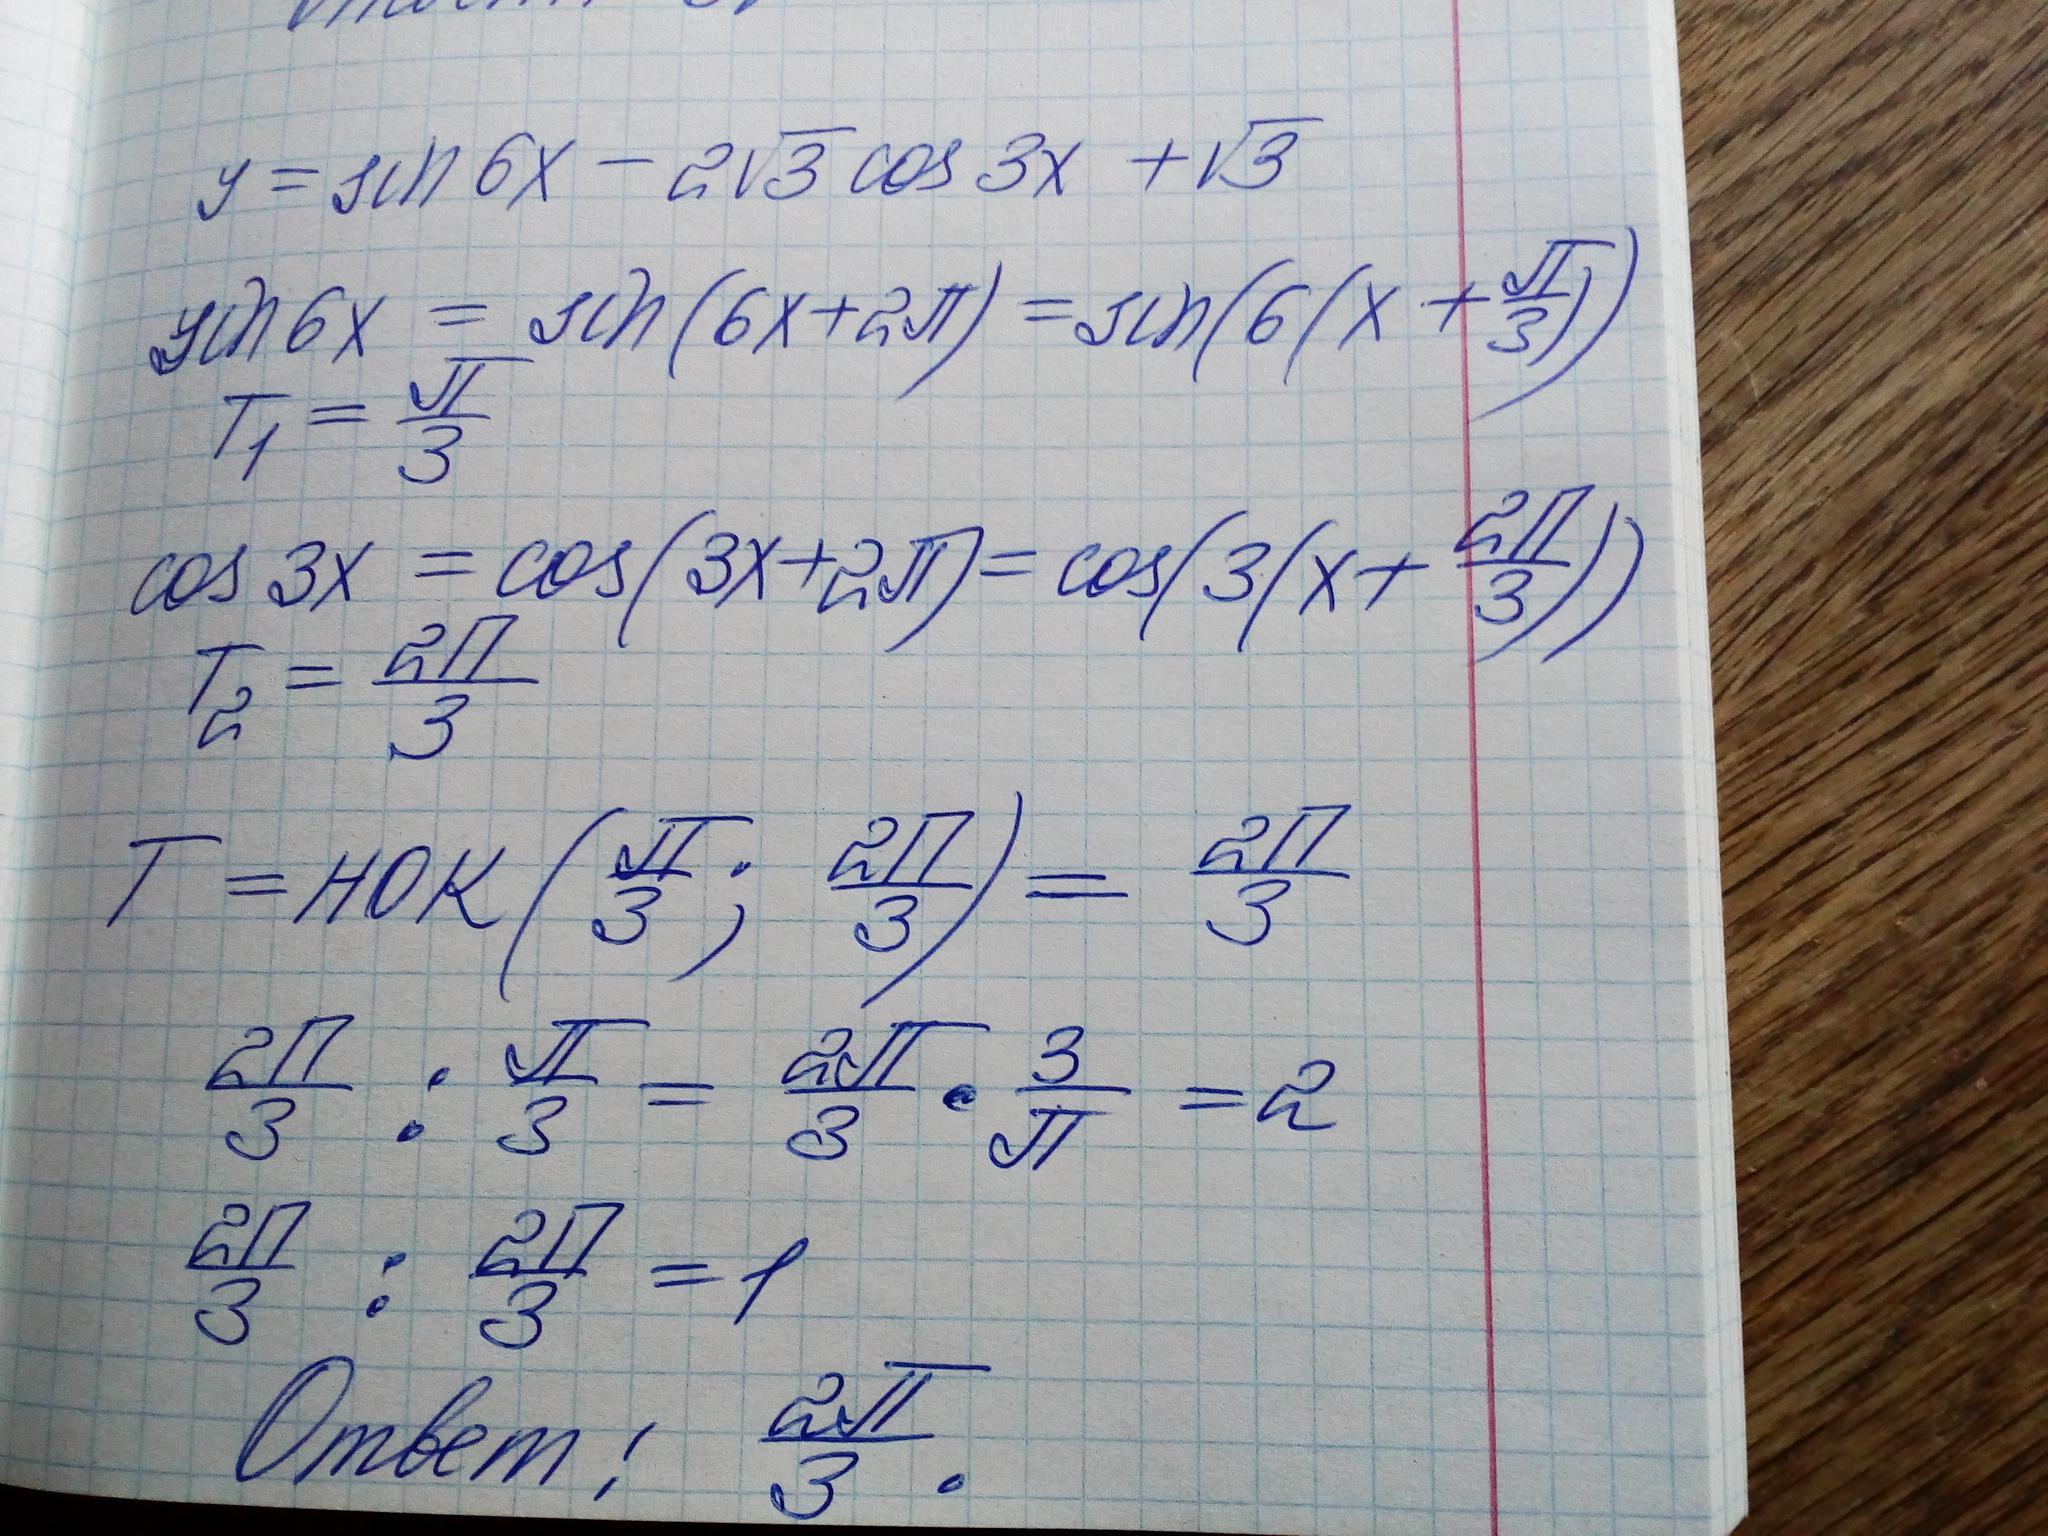 y = sin 6x − 2√3 cos 3x + √3
sin 6x = sin(6x+2π) = sin(6(x + π/3))
T₁ = π/3
cos 3x = cos(3x+2π) = cos(3(x + 2π/3))
T₂ = 2π/3
T = НОК(π/3; 2π/3) = 2π/3
2π/3 : π/3 = 2π/3 · 3/π = 2
2π/3 : 2π/3 = 1
Ответ: 2π/3.